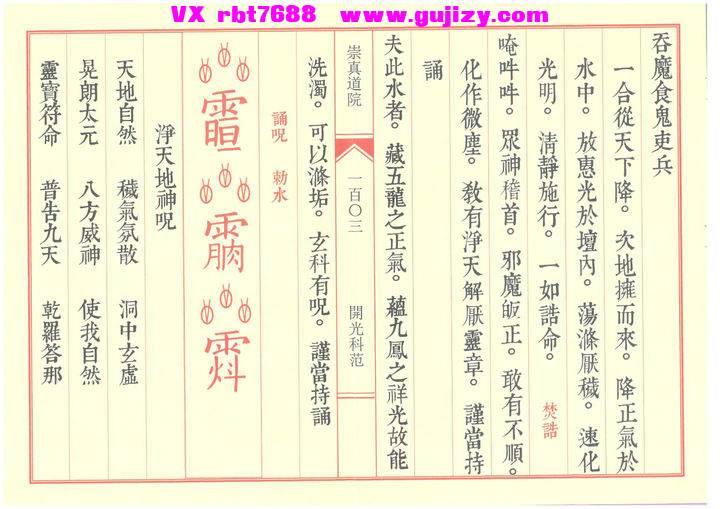 VX rbt7688 www.gujizy.com
吞魔食鬼吏兵
一合從天下降。次地擁而來。降正氣於
水中。放惠光於壇內。蕩滌厭穢。速化
光明。清靜施行。一如誥命。 焚誥
唵吽吽。眾神稽首。邪魔皈正。敢有不順。
化作微塵。敎有淨天解厭靈章。謹當持
誦
夫此水者。藏五龍之正氣。蘊九鳳之祥光故能
崇真道院 一百〇三 開光科范
洗濁。可以滌垢。玄科有呪。謹當持誦
誦呪 勅水
淨天地神呪
天地自然 穢氣氛散 洞中玄虛
晃朗太元 八方威神 使我自然
靈寶符命 普告九天 乾羅答那